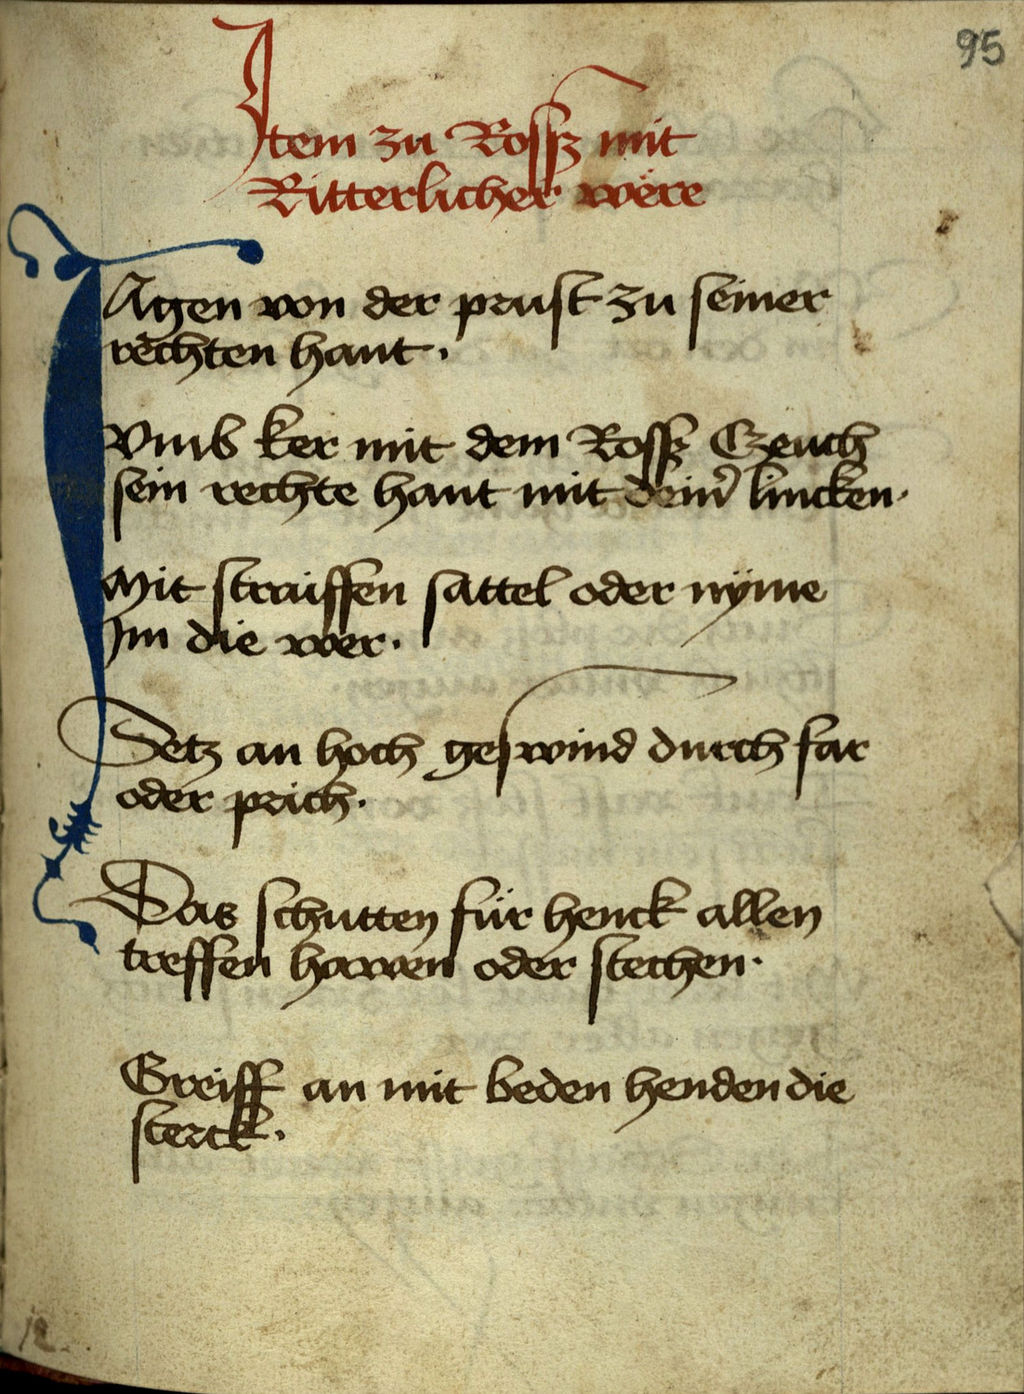 95
Item zu Rossz mit
Ritterlicher were
JAgen von der prust zu seiner
rechten hant.
Vmb ker mit dem Rossz Czeuch
sein rechte hant mit deinˀ lincken.
Mit straiffen sattel oder nÿme
Jm die wer.
Setz an hoch geswind durch far
oder prich.
Das schutten für henck allen
treffen hawen oder stechen.
Greiff an mit beden henden die
sterck.